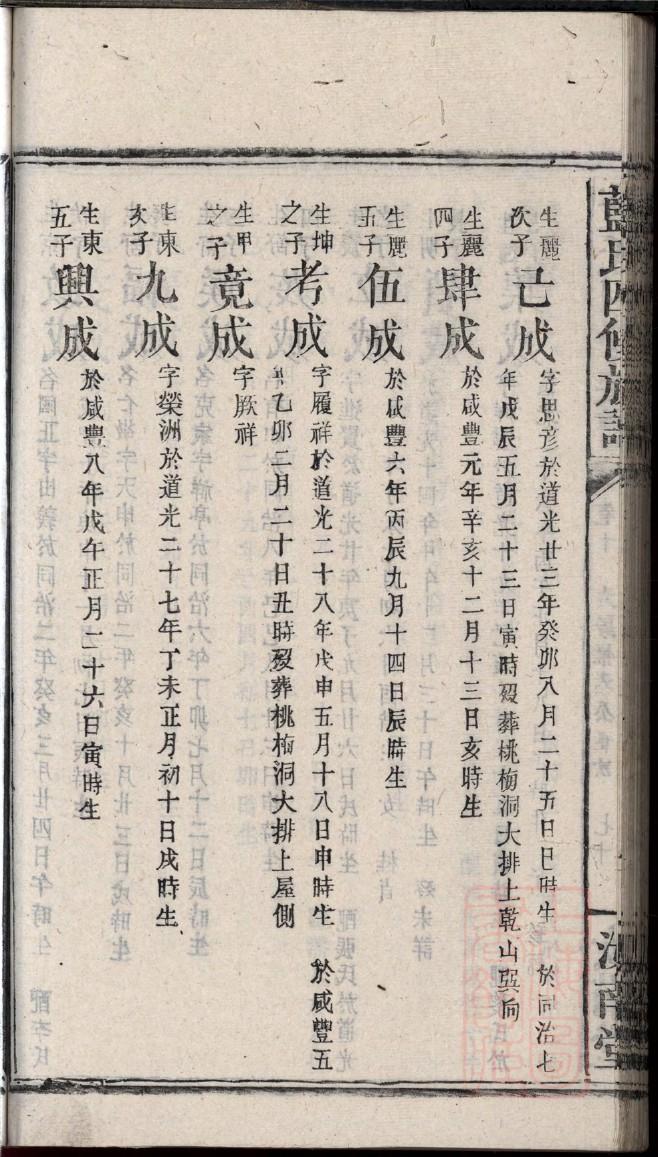 藍氏四修族譜
汝南堂
麗生次子
亡成
字思彦於道光廿三年癸卯八月二十五日巳時生 於同治七
年戊辰五月二十三日寅時歿葬桃梅洞大排上乾山巽向
麗生四子
肆成
於咸豐元年辛亥十二月十三日亥時生
麗生五子
伍成
於咸豐六年丙辰九月十四日辰時生
坤生之子
考成
字履祥於道光二十八年戊申五月十八日申時生 於咸豐五
年乙卯二月二十日丑時歿葬桃梅洞大排上屋側
甲生之子
竟成
字厥祥
東生次子
九成
字榮洲於道光二十七年丁未正月初十日戌時生
東生五子
興成
於咸豐八年戊午正月二十六日寅時生